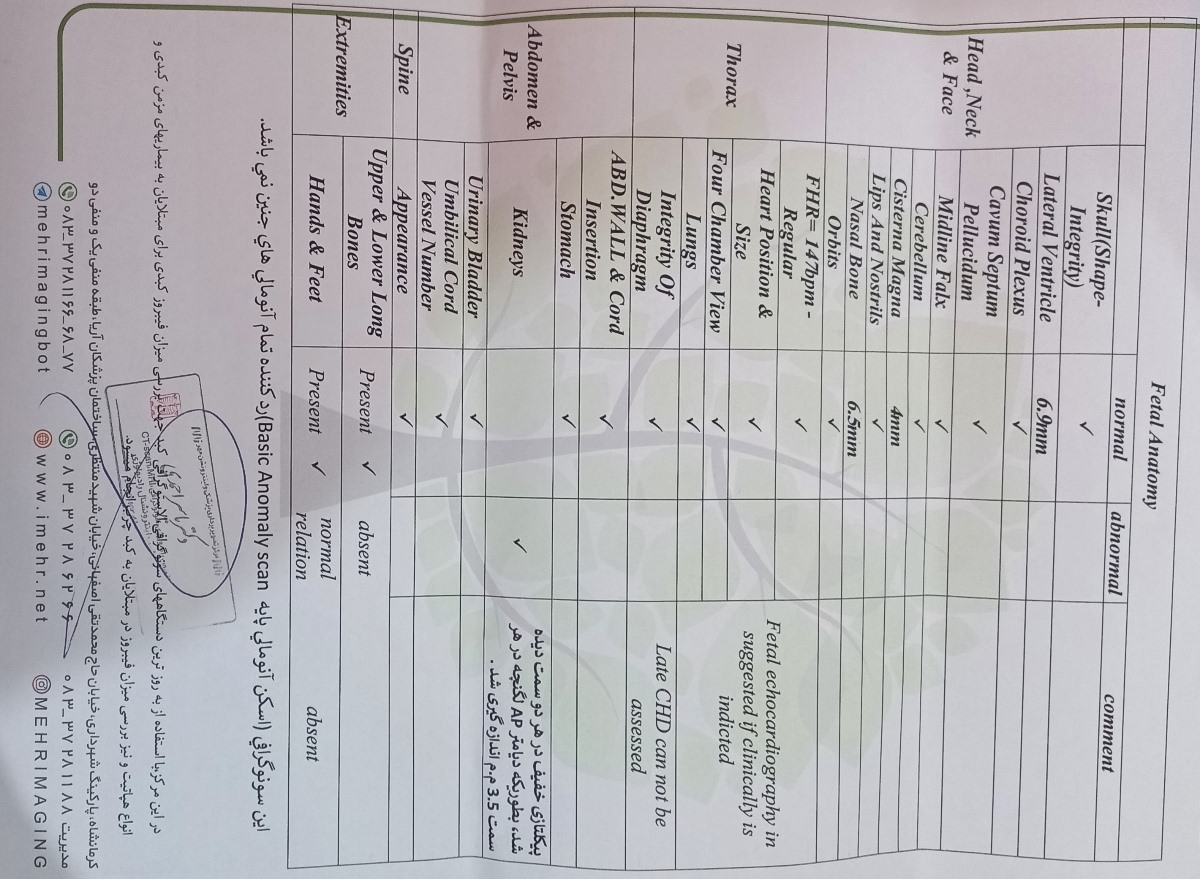 Fetal Anatomy
normal abnormal comment
Head ,Neck & Face
Skull(Shape-Integrity) ✓
Lateral Ventricle 6.9mm
Choroid Plexus ✓
Cavum Septum Pellucidum ✓
Midline Falx ✓
Cerebellum ✓
Cisterna Magna 4mm
Lips And Nostrils ✓
Nasal Bone 6.5mm
Orbits ✓
Thorax
FHR= 147bpm - Regular ✓
Heart Position & Size ✓
Four Chamber View ✓
Fetal echocardiography in
suggested if clinically is
indicted
Lungs ✓
Integrity Of Diaphragm ✓
Late CHD can not be
assessed
Abdomen & Pelvis
ABD.WALL & Cord Insertion ✓
Stomach ✓
Kidneys ✓
پیکتازی خفیف در هر دو سمت دیده
شد، بطوریکه دیامتر AP لگنچه در هر
سمت 3.5 م.م اندازه گیری شد.
Urinary Bladder ✓
Umbilical Cord Vessel Number ✓
Spine
Appearance ✓
Extremities
Upper & Lower Long Bones Present ✓ absent
Hands & Feet Present ✓ normal relation absent
این سونوگرافي (اسکن آنومالي پایه Basic Anomaly scan)رد کننده تمام آنومالي هاي جنین نمي باشد.
در این مرکز با استفاده از به روز ترین دستگاههای سونوگرافی الاستوگرافی کبد جهت بررسی میزان فیبروز کبدی برای مبتلایان به بیماریهای مزمن کبدی و
انواع هپاتیت و نیز بررسی میزان فیبروز در مبتلایان به کبد چرب انجام میشود.
کرمانشاه، پارکینگ شهرداری، خیابان حاج محمدتقی اصفهانی، خیابان شهید منتظری، ساختمان پزشکان آریا، طبقه منفی یک و منفی دو
۰۸۳_۳۷۲۸۱۱۶۶_۶۸_۷۷ ۰۸۳_۳۷۲۸۶۲۶۶ ۰۸۳_۳۷۲۸۱۱۸۸ مدیریت
mehrimagingbot www.imehr.net MEHRIMAGING